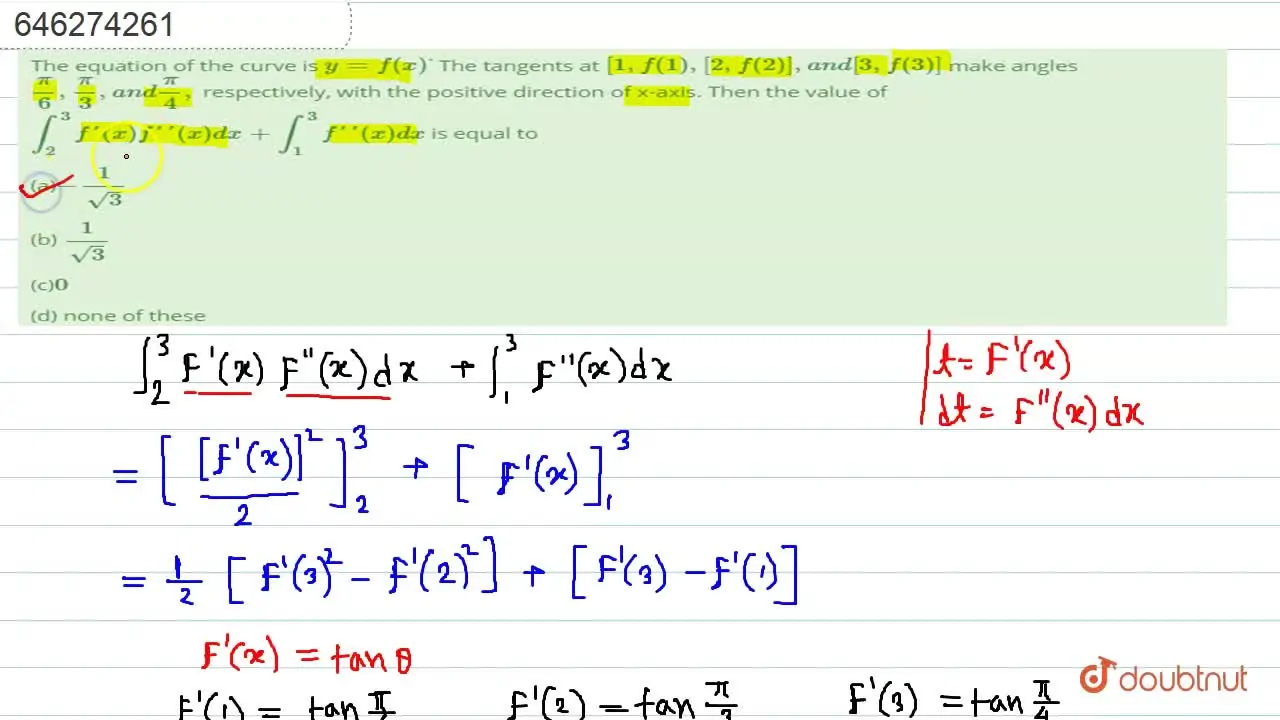 646274261
The equation of the curve is y = f(x)˙ The tangents at [1, f(1), [2, f(2)], and[3, f(3)] make angles
π/6, π/3, and π/4, respectively, with the positive direction of x-axis. Then the value of
∫₂³ f'(x)f''(x)dx + ∫₁³ f''(x)dx is equal to
(a) − 1/√3
(b) 1/√3
(c)0
(d) none of these
∫₂³ F'(x) F''(x)dx + ∫₁³ F''(x)dx
t = F'(x)
dt = F''(x)dx
= [ [F'(x)]²/2 ]₂³ + [ F'(x) ]₁³
= 1/2 [ F'(3)² − F'(2)² ] + [ F'(3) − F'(1) ]
F'(x) = tan θ
F'(1) = tan π F'(2) = tan π/3 F'(3) = tan π/4
doubtnut